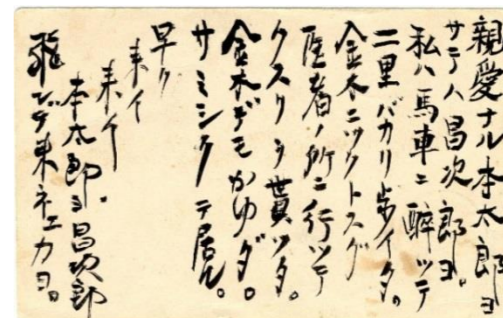 親愛ナル本太郎ヨ
サテハ昌次郎ヨ。
私ハ馬車ニ酔ッテ
二里バカリ歩イタ。
金木ニツクトスグ
医者ノ所ニ行ッテ
クスリヲ貰ッタ。
金木デモかゆダ。
サミシクテ居ル。
早ク
来イ
来イ
本太郎。ヨ昌次郎
飛ンデ来ネエカヨ。